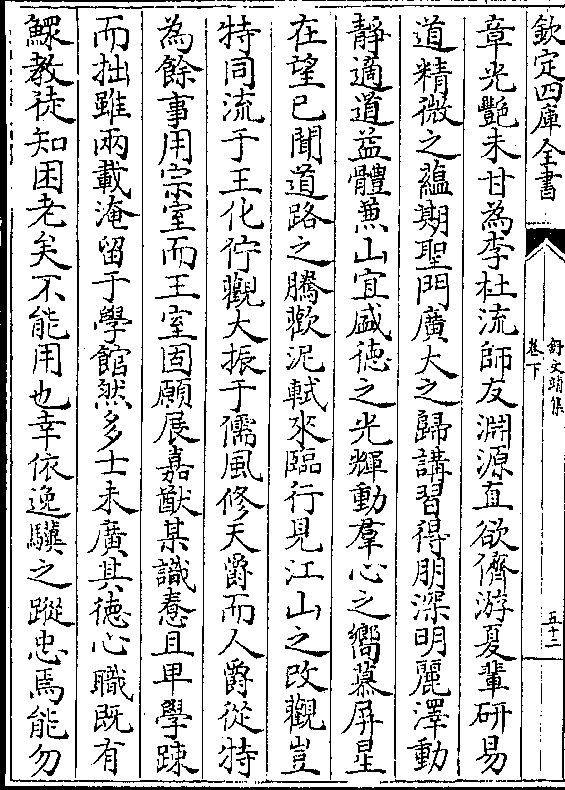 欽定四庫全書
舒文靖集
卷下
五十二
章光艷未甘為李杜流師友淵源直欲儕游夏輩研易
道精微之蘊期聖門廣大之歸講習得朋深明麗澤動
靜適道益體兼山宜盛徳之光輝動羣心之嚮慕屏星
在望已聞道路之騰歡泥軾來臨行見江山之改觀豈
特同流于王化佇觀大振于儒風修天爵而人爵從特
為餘事用宗室而王室固願展嘉猷某識惷且卑學踈
而拙雖兩載淹留于學館然多士未廣其徳心職既有
鰥教徒知困老矣不能用也幸依逸驥之蹤忠焉能勿